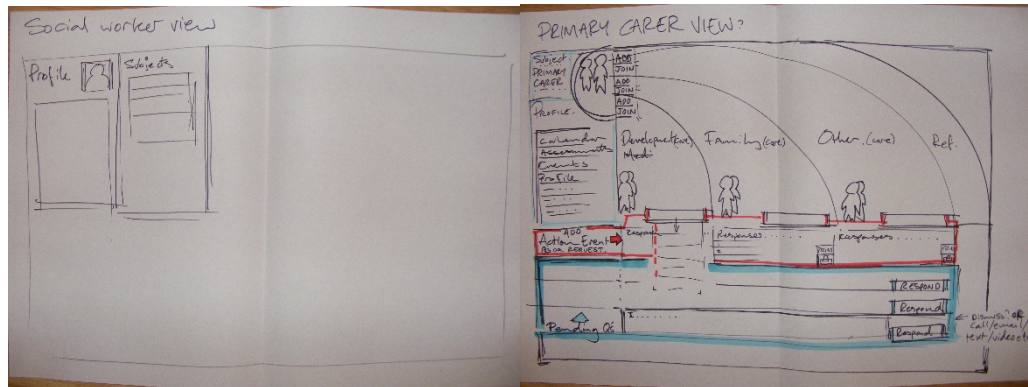 Social worker view
Profile
Subjects
PRIMARY CARER VIEW?
Subject
PRIMARY
CARER
ADD
JOIN
ADD
JOIN
ADD
JOIN
PROFILE.
Calendar
Assessments
Events
Profile
Development (care)
Family (care)
Other. (care)
Ref.
ADD
Action Event
REQUEST.
Respond
Responses
Responses
JOIN
JOIN
RESPOND
Respond
Respond
Pending Q's
← DISMISS? OR
call/email/
text/video etc